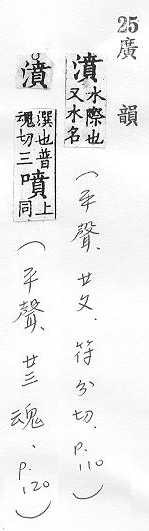 25廣韻
濆水際也又水名(平聲、廿文、符分切、p.110)
濆潠也普魂切三噴上同(平聲、廿三魂、p.120)